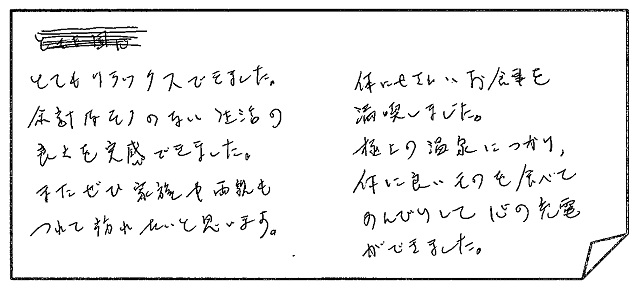 とてもリラックスできました。
余計なもののない生活の
良さを実感できました。
またぜひ家族や両親も
つれて訪れたいと思います。
体にやさしいお食事を
満喫しました。
極上の温泉につかり、
体に良いものを食べて
のんびりして心の充電
ができました。